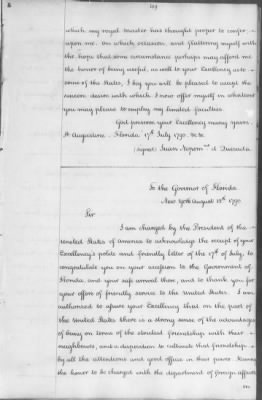 109
which my royal master has thought proper to confer
upon me. On which occasion, and flattering myself with
the hope that some circumstance perhaps may afford me
the honor of being useful, as well to your Excellency as to
some of the States, I beg you will be pleased to accept the
sincere desire with which I now offer myself in whatever
you may please to employ my limited faculties.
God preserve your Excellency many years.
St Augustine, Florida 17th July 1790. &c &c
(signed) Juan Nepom.no de Quesada
To the Governor of Florida
New York August 12th 1790
Sir
I am charged by the President of the
United States of America to acknowledge the receipt of your
Excellency's polite and friendly letter of the 17th of July, to
congratulate you on your accession to the Government of
Florida and your safe arrival there, and to thank you for
your offers of friendly service to the United States. I am
authorised to assure your Excellency that on the part of
the United States there is a strong sense of the advantages
of being on terms of the strictest friendship with their
neighbours, and a disposition to cultivate that friendship
by all the attentions and good offices in their power. Having
the honor to be charged with the department of foreign affairs